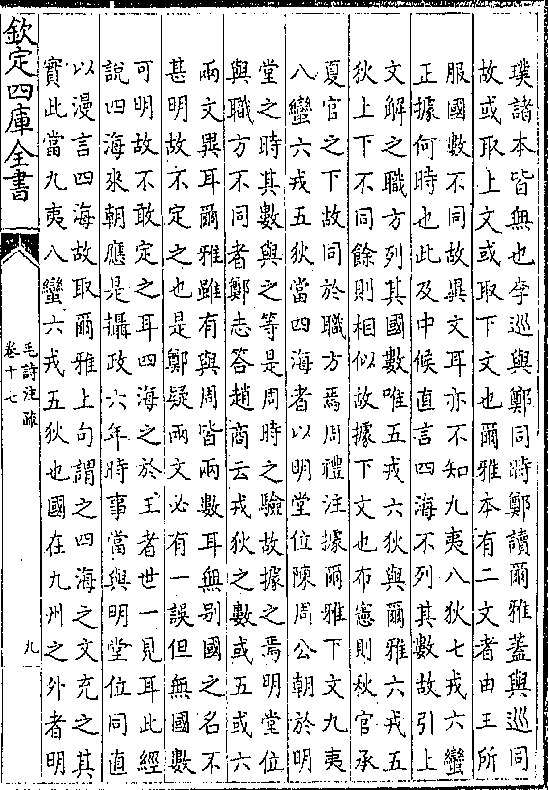 璞諸本皆無也李巡與鄭同時鄭讀爾雅蓋與巡同
故或取上文或取下文也爾雅本有二文者由王所
服國數不同故異文耳亦不知九夷八狄七戎六蠻
正據何時也此及中候直言四海不列其數故引上
文解之職方列其國數唯五戎六狄與爾雅六戎五
狄上下不同餘則相似故據下文也布憲則秋官承
夏官之下故同於職方焉周禮注據爾雅下文九夷
八蠻六戎五狄當四海者以明堂位陳周公朝於明
堂之時其數與之等是周時之驗故據之焉明堂位
與職方不同者鄭志答趙商云戎狄之數或五或六
兩文異耳爾雅雖有與周皆兩數耳無别國之名不
甚明故不定之也是鄭疑兩文必有一誤但無國數
可明故不敢定之耳四海之於王者世一見耳此經
說四海來朝應是攝政六年時事當與明堂位同直
以漫言四海故取爾雅上句謂之四海之文充之其
實此當九夷八蠻六戎五狄也國在九州之外者明
欽定四庫全書
毛詩注疏
卷十七
九